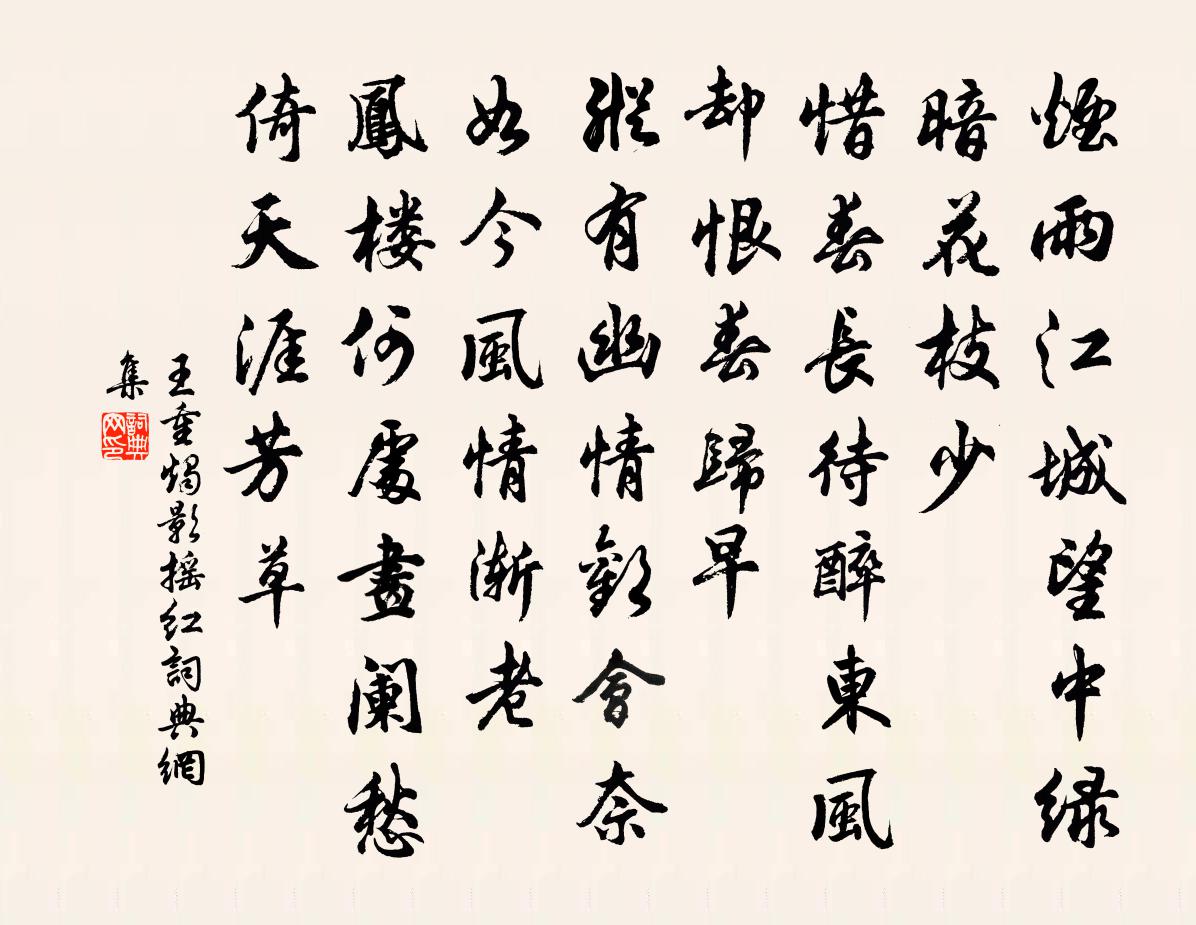 煙雨江城望中綠
暗花枝少
惜春長待醉東風
却恨春歸早
縱有幽情歡會奈
如今風情漸老
鳳楼何處畫闌愁
倚天涯芳草
王重燭影摇红詞典網
集
詞典
网印